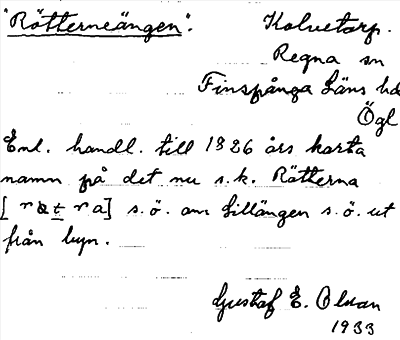 "Rötterneängen". Kolvetorp.
Regna sn
Finspånga Läns hd
Ögl
Enl. handl. till 1826 års karta
namn på det nu s.k. Rötterna
[ r t r a] s.ö. om Lillängen s.ö. ut
från byn.
Gustaf E. Olsson
1933